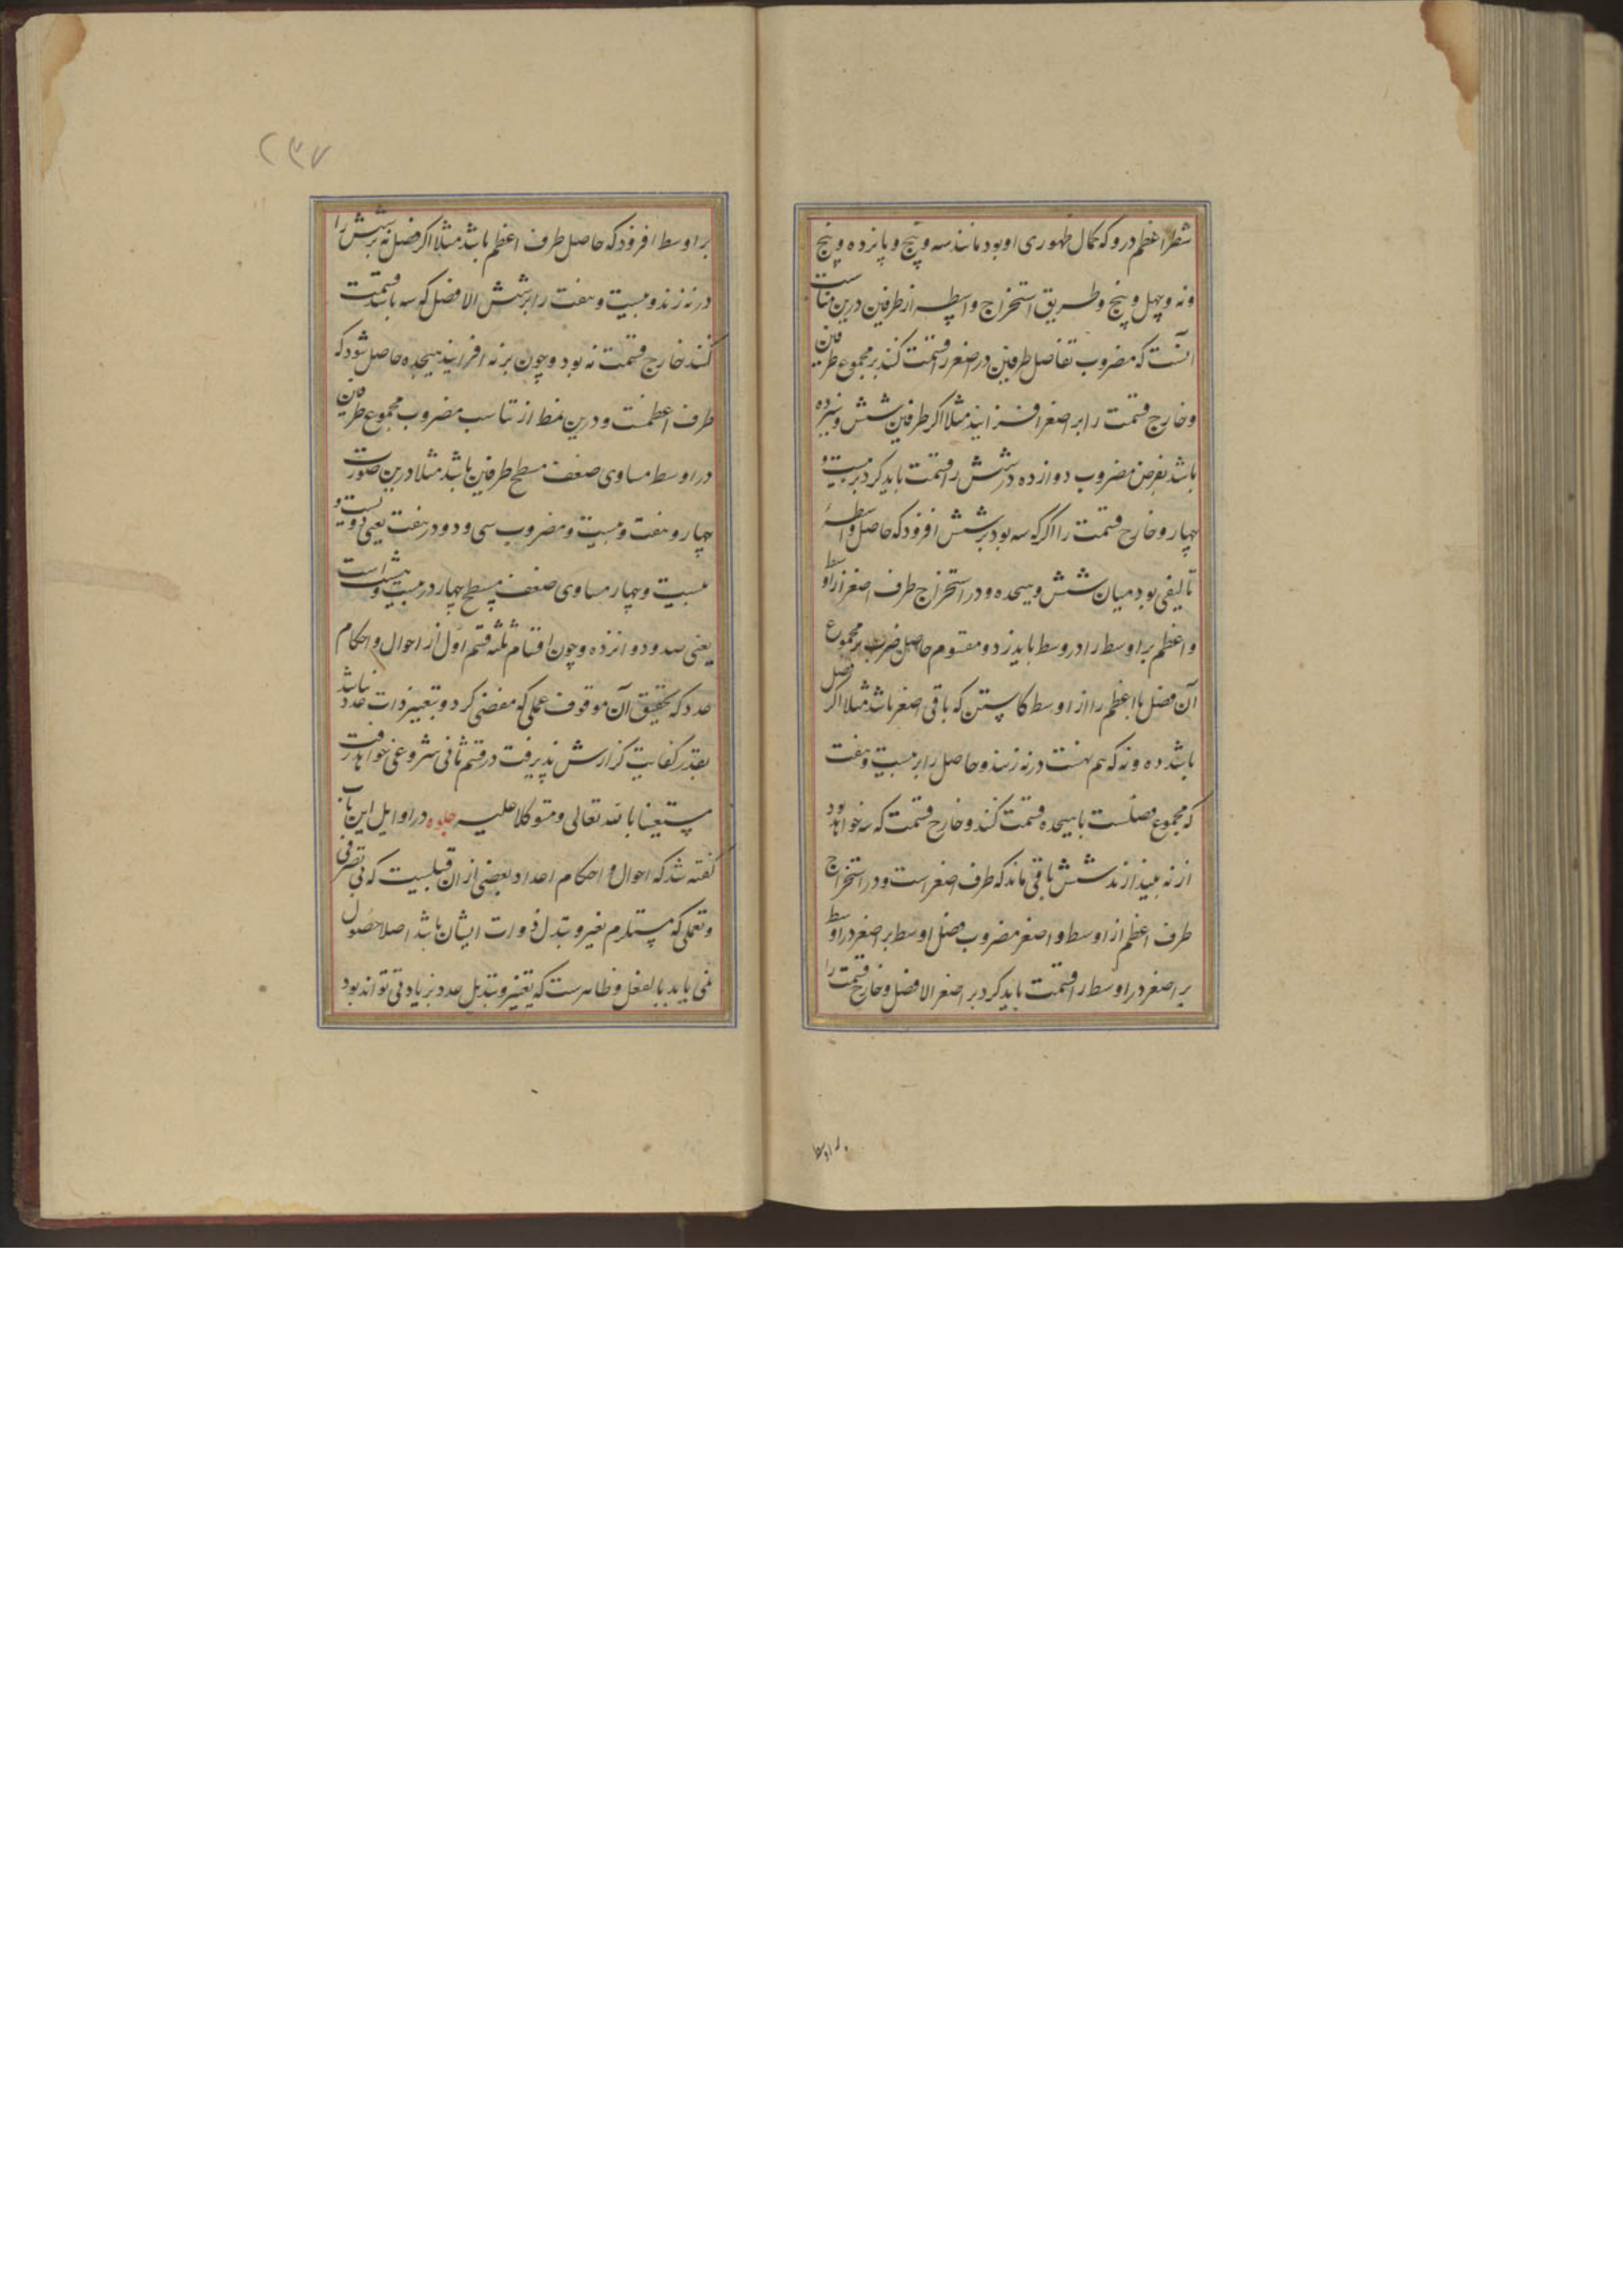 شطر اعظم درو که کمال ظهوری او بود مانند سه و پنج و پانزده و پنج
و نه و چهل و پنج و طریق استخراج واسطه از طرفین درین مناسبت
آنست که مضروب تفاضل طرفین در اصغر را قسمت کنند بر مجموع طرفین
و خارج قسمت را بر اصغر افزایند مثلا اگر طرفین شش و هیجده
باشد بفرض مضروب دوازده در شش را قسمت باید کرد بر بیست و
چهار و خارج قسمت را اگر که سه بود بر شش افزود که حاصل واسطهٔ
تالیفی بود میان شش و هیجده و در استخراج طرف اصغر از اوسط
و اعظم بر اوسط را در وسط باید زد و مقسوم حاصل ضرب بر مجموع
آن فضل با اعظم را از اوسط کاستن که باقی اصغر باشد مثلا اگر فضل
باشد ده و نه که هم نهست در نه زنند و حاصل را بر بیست و هفت
که مجموع فضلست با هیجده قسمت کنند و خارج قسمت که سه خواهد بود
از نه بیندازند شش باقی ماند که طرف اصغر است و در استخراج
طرف اعظم از اوسط و اصغر مضروب فضل اوسط بر اصغر در اوسط
بر اصغر در اوسط را قسمت باید کرد بر اصغر الا فضل و خارج قسمت را
۲۳۷
بر اوسط افزود که حاصل طرف اعظم باشد مثلا اگر فضل نه بر شش را
در نه زند و بیست و هفت را بر شش الا فضل که سه باشد قسمت
کنند خارج قسمت نه بود و چون بر نه افزایند هیجده حاصل شود که
طرف اعظمت و درین نمط از تناسب مضروب مجموع طرفین
در اوسط مساوی ضعف مسطح طرفین باشد مثلا درین صورت
چهار و هفت و بیست و مضروب سی و دو در هفت یعنی دویست و
بیست و چهار مساوی ضعف مسطح چهار در بیست و هشت است
یعنی صد و دوازده و چون اقسام ثلثه قسم اول از احوال و احکام
عدد که تحقیق آن موقوف عملی که مفضی کردد بتغییر ذات عدد نباشد
بقدر کفایت گزارش پذیرفت در قسم ثانی شروعی خواهد رفت
مستعینا بالله تعالی و متوکلا علیه جلوه در اوایل این باب
گفته شد که احوال و احکام اعداد بعضی از آن قبیلست که بی تصرفی
و تعملی که مستلزم تغیر و تبدل ذوات ایشان باشد اصلا حصول
نمی یابد بالفعل و ظاهرست که تغییر و تبدیل عدد بزیادتی تواند بود